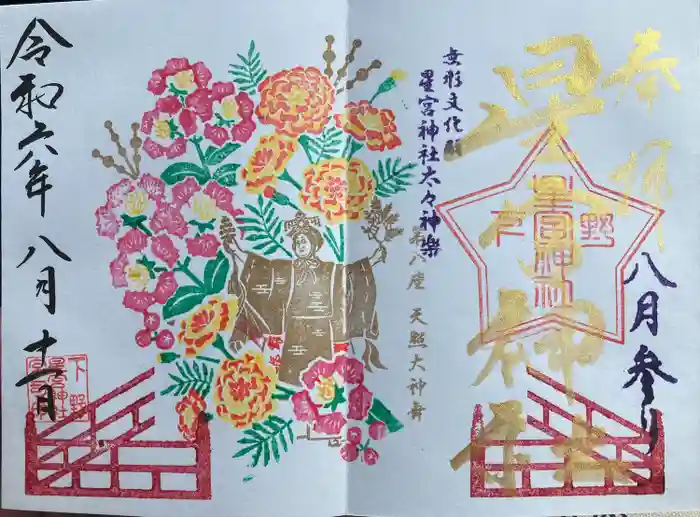 奉拝
八月参り
星宮神社
星宮神社
無形文化財
星宮神社太々神楽
第八座 天照大神舞
令和六年八月十一日
下野
星宮神社